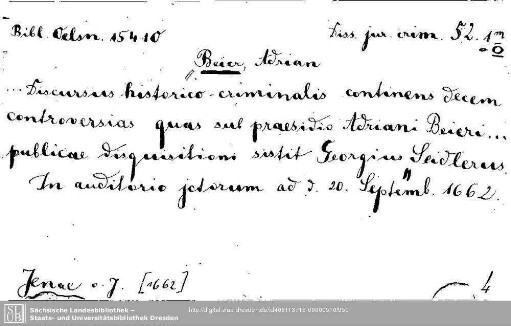 Bibl. Oelsn. 15410 Diss. jur. crim. 52. 1m
Beier, Adrian
... Discursus historico-criminalis continens decem
controversias quas sub praesidio Adriani Beieri...
publicae disquisitioni sistit Georgius Seidlerus.
In auditorio jctorum ad d. 20. Septemb. 1662.
Jenae o. J. [1662] 4
SLUB
Sächsische Landesbibliothek –
Staats- und Universitätsbibliothek Dresden